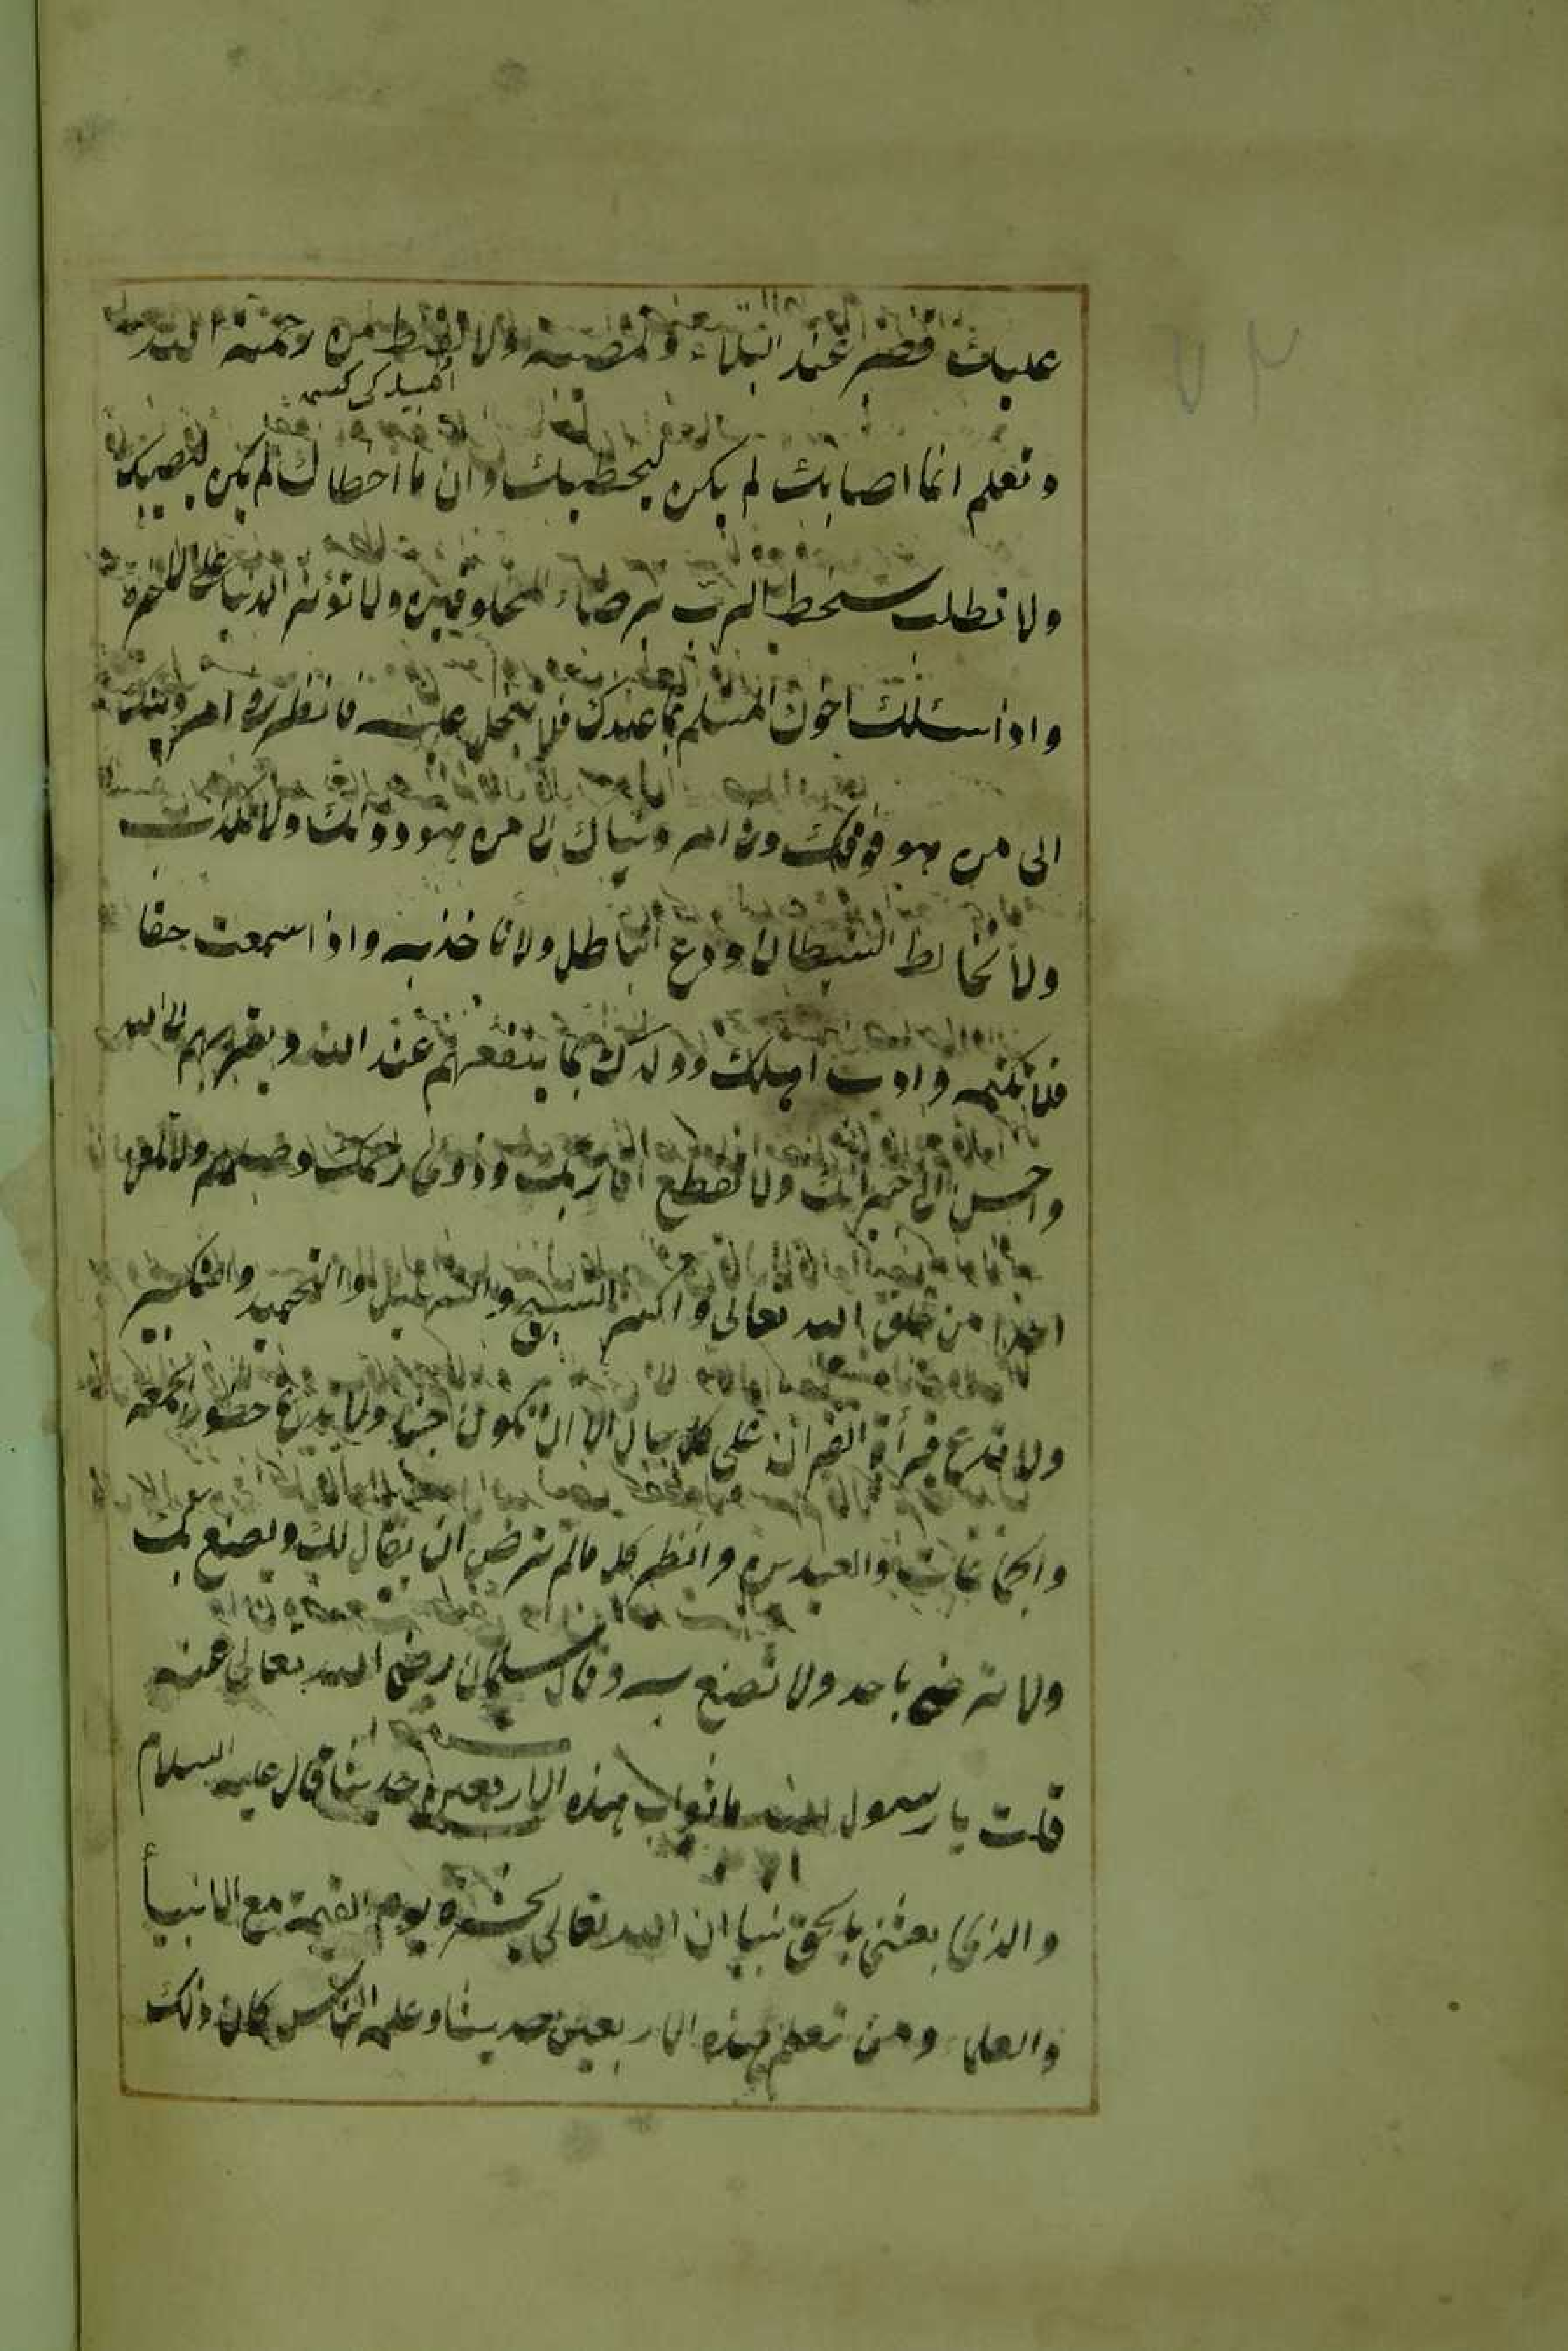 عليك فصبر عند البلاء ولمصيبة ولا تقنط من رحمة الله
وتعلم انما اصابك لم يكن ليخطيك وان ما اخطاك لم يكن ليصيبك
ولا تطلب سخط الرب برضاء المخلوقين ولا تؤثر الدنيا على الاخرة
واذا سئلك اخوك المسلم بما عندك فلا تبخل عليه فانظر في امر دينك
الى من هو فوقك وفي امر دنياك الى من هو دونك ولا
ولا تخالط الشيطان ودع الباطل ولا تاخذ به واذا سمعت حقا
فلا تكتمه وادب اهلك وولدك بما ينفعهم عند الله ويقربهم الى الله
واحسن الى جيرانك ولا تقطع اقاربك وذوى رحمك وصلهم ولا تلعن
احدا من خلق الله تعالى واكثر التسبيح والتهليل والتحميد والتكبير
ولا تدع قرأة القران على كل حال الا ان تكون جنبا ولا تدع حضور الجمعة
والجماعات والعيدين وانظر كل مالم ترض ان يقال لك ويصنع بك
ولا ترض باحد ولا تصنع به وقال سلمان رضى الله تعالى عنه
قلت يا رسول الله ما ثواب هذه الاربعين حديثا قال عليه السلام
والذى بعثنى بالحق نبيا ان الله تعالى يحشره يوم القيمة مع الانبيأ
والعلما ومن تعلم هذه الاربعين حديثا وعلمه الناس كان ذلك